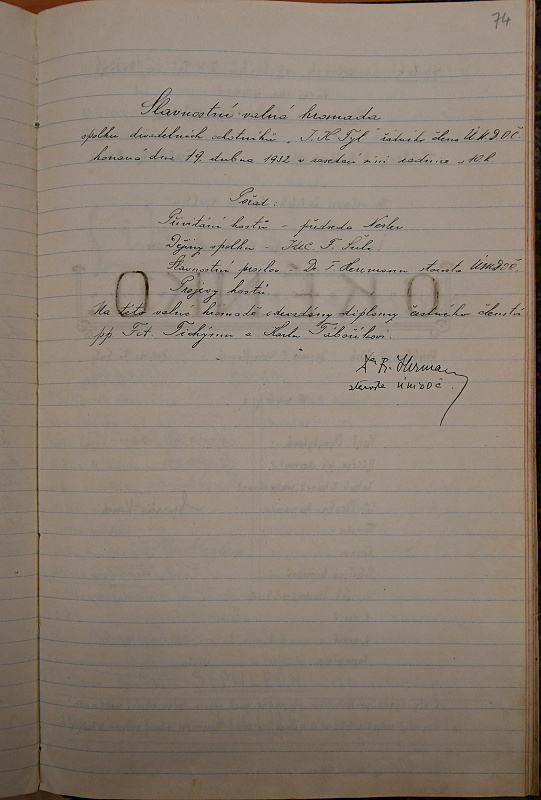 74
Slavnostní valná hromada
spolku divadelních ochotníků „J. K. Tyl" řádného člena ÚMDOČ
konaná dne 19. dubna 1932 v zasedací síni radnice v 10 h
Pořad:
Přivítání hostů – předseda Nesler
Dějiny spolku – F. Šulc
Slavnostní proslov – Dr. F. Herrmann starosta ÚMDOČ.
Projevy hostů
Na této valné hromadě odevzdány diplomy čestného členství
pp. Fr. Tichýmu a Karlu Táborskému.
Dr. Herrmann
starosta ÚMDOČ.